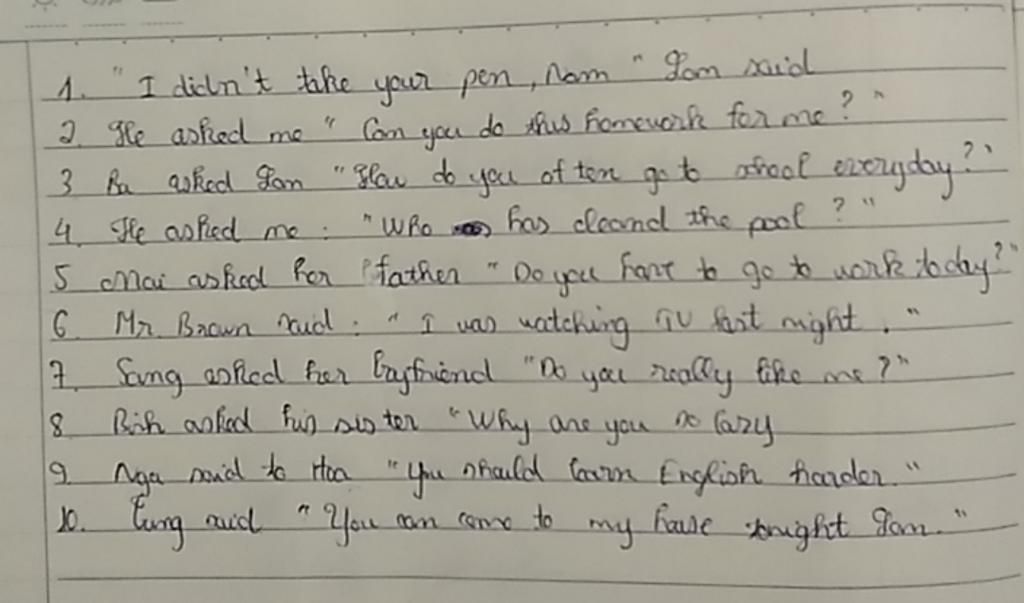 1. "I didn't take your pen, Nam" Lam said
2. He asked me "Can you do this homework for me?"
3 Ba asked Lan "How do you often go to school everyday?"
4. He asked me: "Who has cleaned the pool?"
5 Mai asked her father "Do you have to go to work today?"
6. Mr. Brown said: "I was watching TV last night."
7. Sang asked her boyfriend "Do you really like me?"
8 Binh asked his sister "Why are you so lazy
9. Nga said to Hoa "You should learn English harder."
10. Tung said "You can come to my house tonight Lam."